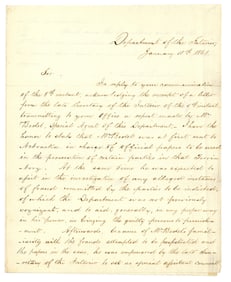 Department of the Interior,
January 11th 1861.
Sir
In reply to your communication
of the 9th instant, acknowledging the receipt of a letter
from the late Secretary of the Interior of the instant
transmitting to your Office a report made by Mr
Special Agent of this Department, I have the
honor to state that Mr was at first sent to
Nebraska in charge of official papers to be used
in the prosecution of certain parties in that Terri-
tory. At the same time he was expected to
assist in the investigation of any alleged
of fraud committed by the parties to be indicted,
of which the Department was not previously
cognizant, and to aid, generally, in any proper way
in his power, in bringing the guilty parties to punish-
ment. Afterwards, because of Mr famil-
iarity with the frauds attempted to be perpetrated and
the papers in the case, he was empowered by the late Sec-
retary of the Interior to act as special assistant counsel